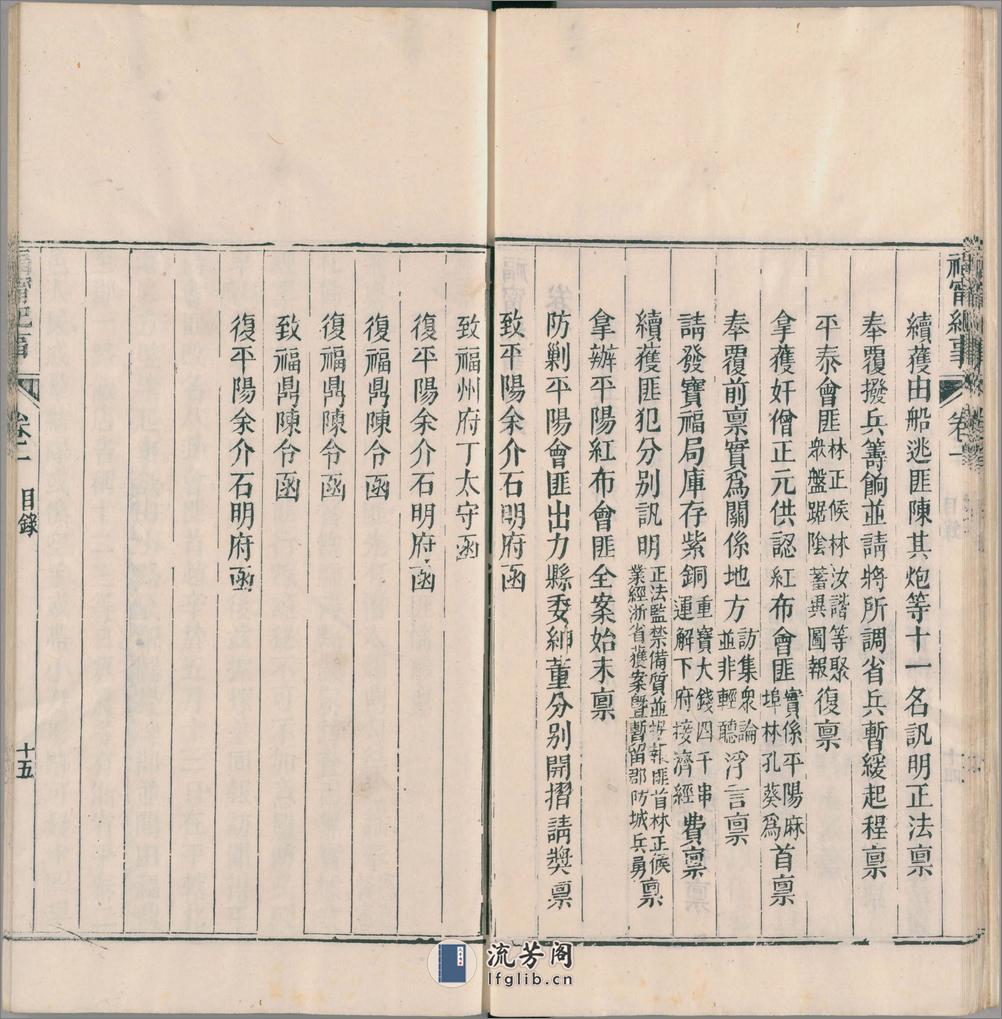 福寧紀事 卷一
續獲由船逃匪陳其炮等十一名訊明正法稟
奉覆撥兵籌餉並請將所調省兵暫緩起程稟
平泰會匪林正候林汝諧等聚衆盤踞陰蓄異圖報復稟
拿獲奸僧正元供認紅布會匪實係平陽麻埠林孔葵爲首稟
奉覆前稟實爲關係地方訪集衆論並非輕聽浮言稟
請發寶福局庫存紫銅重寶大錢四千串運解下府接濟經費稟
續獲匪犯分別訊明正法監禁備質並匪首林正候業經浙省獲案暨暫留郡防城兵勇稟
拿辦平陽紅布會匪全案始末稟
防剿平陽會匪出力縣委紳董分別開摺請獎稟
致平陽余介石明府函
致福州府丁太守函
復平陽余介石明府函
復福鼎陳令函
復福鼎陳令函
致福鼎陳令函
復平陽余介石明府函
目錄
十五
流芳阁
lfglib.cn